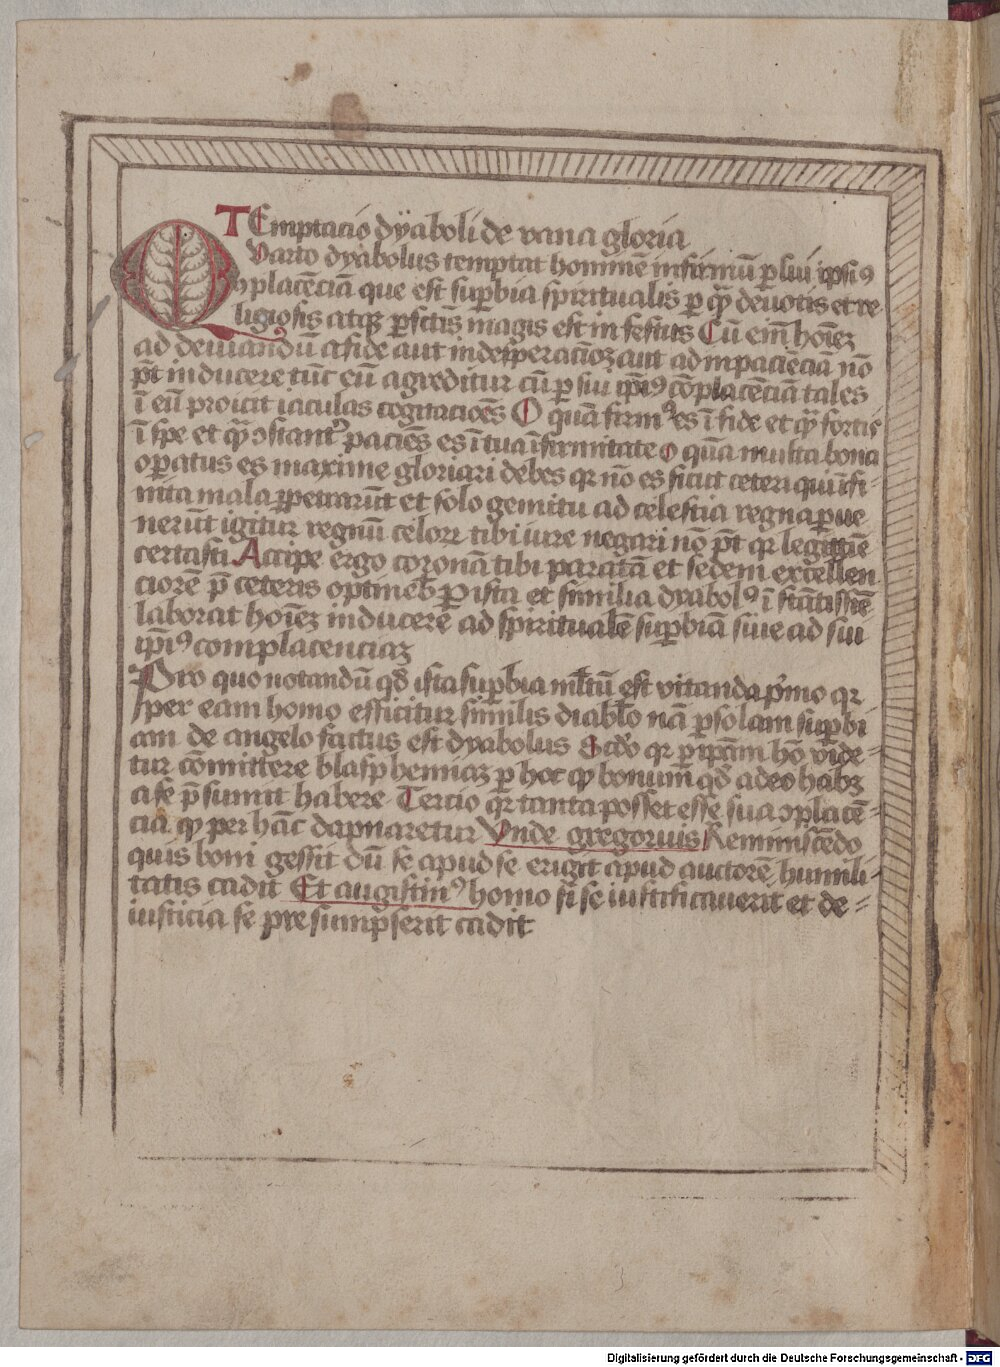 TEmptacio dÿaboli de vana gloria
Qvarto dyabolus temptat hominē infirmū ꝑ sui ipsiꝰ
ɔplacēciā que est suꝑbia spiritualis ꝑ qͣꝫ deuotis et re
ligiosis atqꝫ ꝑfc̄tis magis est infestus Cū em̄ hoīeꝫ
ad deuiandū a fide aut in desꝑacioeꝫ aut ad inpaciēciā nō
pōt inducere tūc eū agreditur cū ꝑ sui ip̄iꝰ cōplacēciā tales
ī eū proicit iaculas cogitacioēs O quā firmꝰ es ī fide et qͣꝫ fortis
ī spe et qͣꝫ ɔstant̾ paciēs es ī tua īfirmitate o quā multa bona
oꝑatus es maxime gloriari debes qꝛ nō es sicut ceteri qui īfi-
nita mala ꝑpetrarūt et solo gemitu ad celestia regna ꝑue
nerūt igitur regnū celoꝝ tibi iure negari nō pōt qꝛ legittīe
certasti Accipe ergo coronā tibi paratā et sedem excellen
ciorē p̄ ceteris optineb̾ Per ista et similia dyabolꝰ ī stātissīe
laborat hoīeꝫ inducere ad spiritualē suꝑbiā siue ad sui
ip̄iꝰ complacenciaꝫ
Pro quo notandū qd̾ ista suꝑbia ml̄tū est vitanda pͥmo qꝛ
per eam homo efficitur similis diabl̾o nā ꝑ solam suꝑbi
am de angelo factus est dyabolus Scd̾o qꝛ ꝑ ip̄am hō vide-
tur cōmittere blasphemiaꝫ ꝑ hoc qꝫ bonum qd̾ a deo habꝫ
a se p̄sumit habere Tercio qꝛ tanta posset esse sua ɔplacē-
cia qꝫ per hāc dapnaretur Vnde gregorius Reminiscēdo
quis boni gessit dū se apud se erigit apud auctorē humili-
tatis cadit Et augustinꝰ homo si se iustificauerit et de-
iusticia se presumpserit cadit
Digitalisierung gefördert durch die Deutsche Forschungsgemeinschaft - DFG